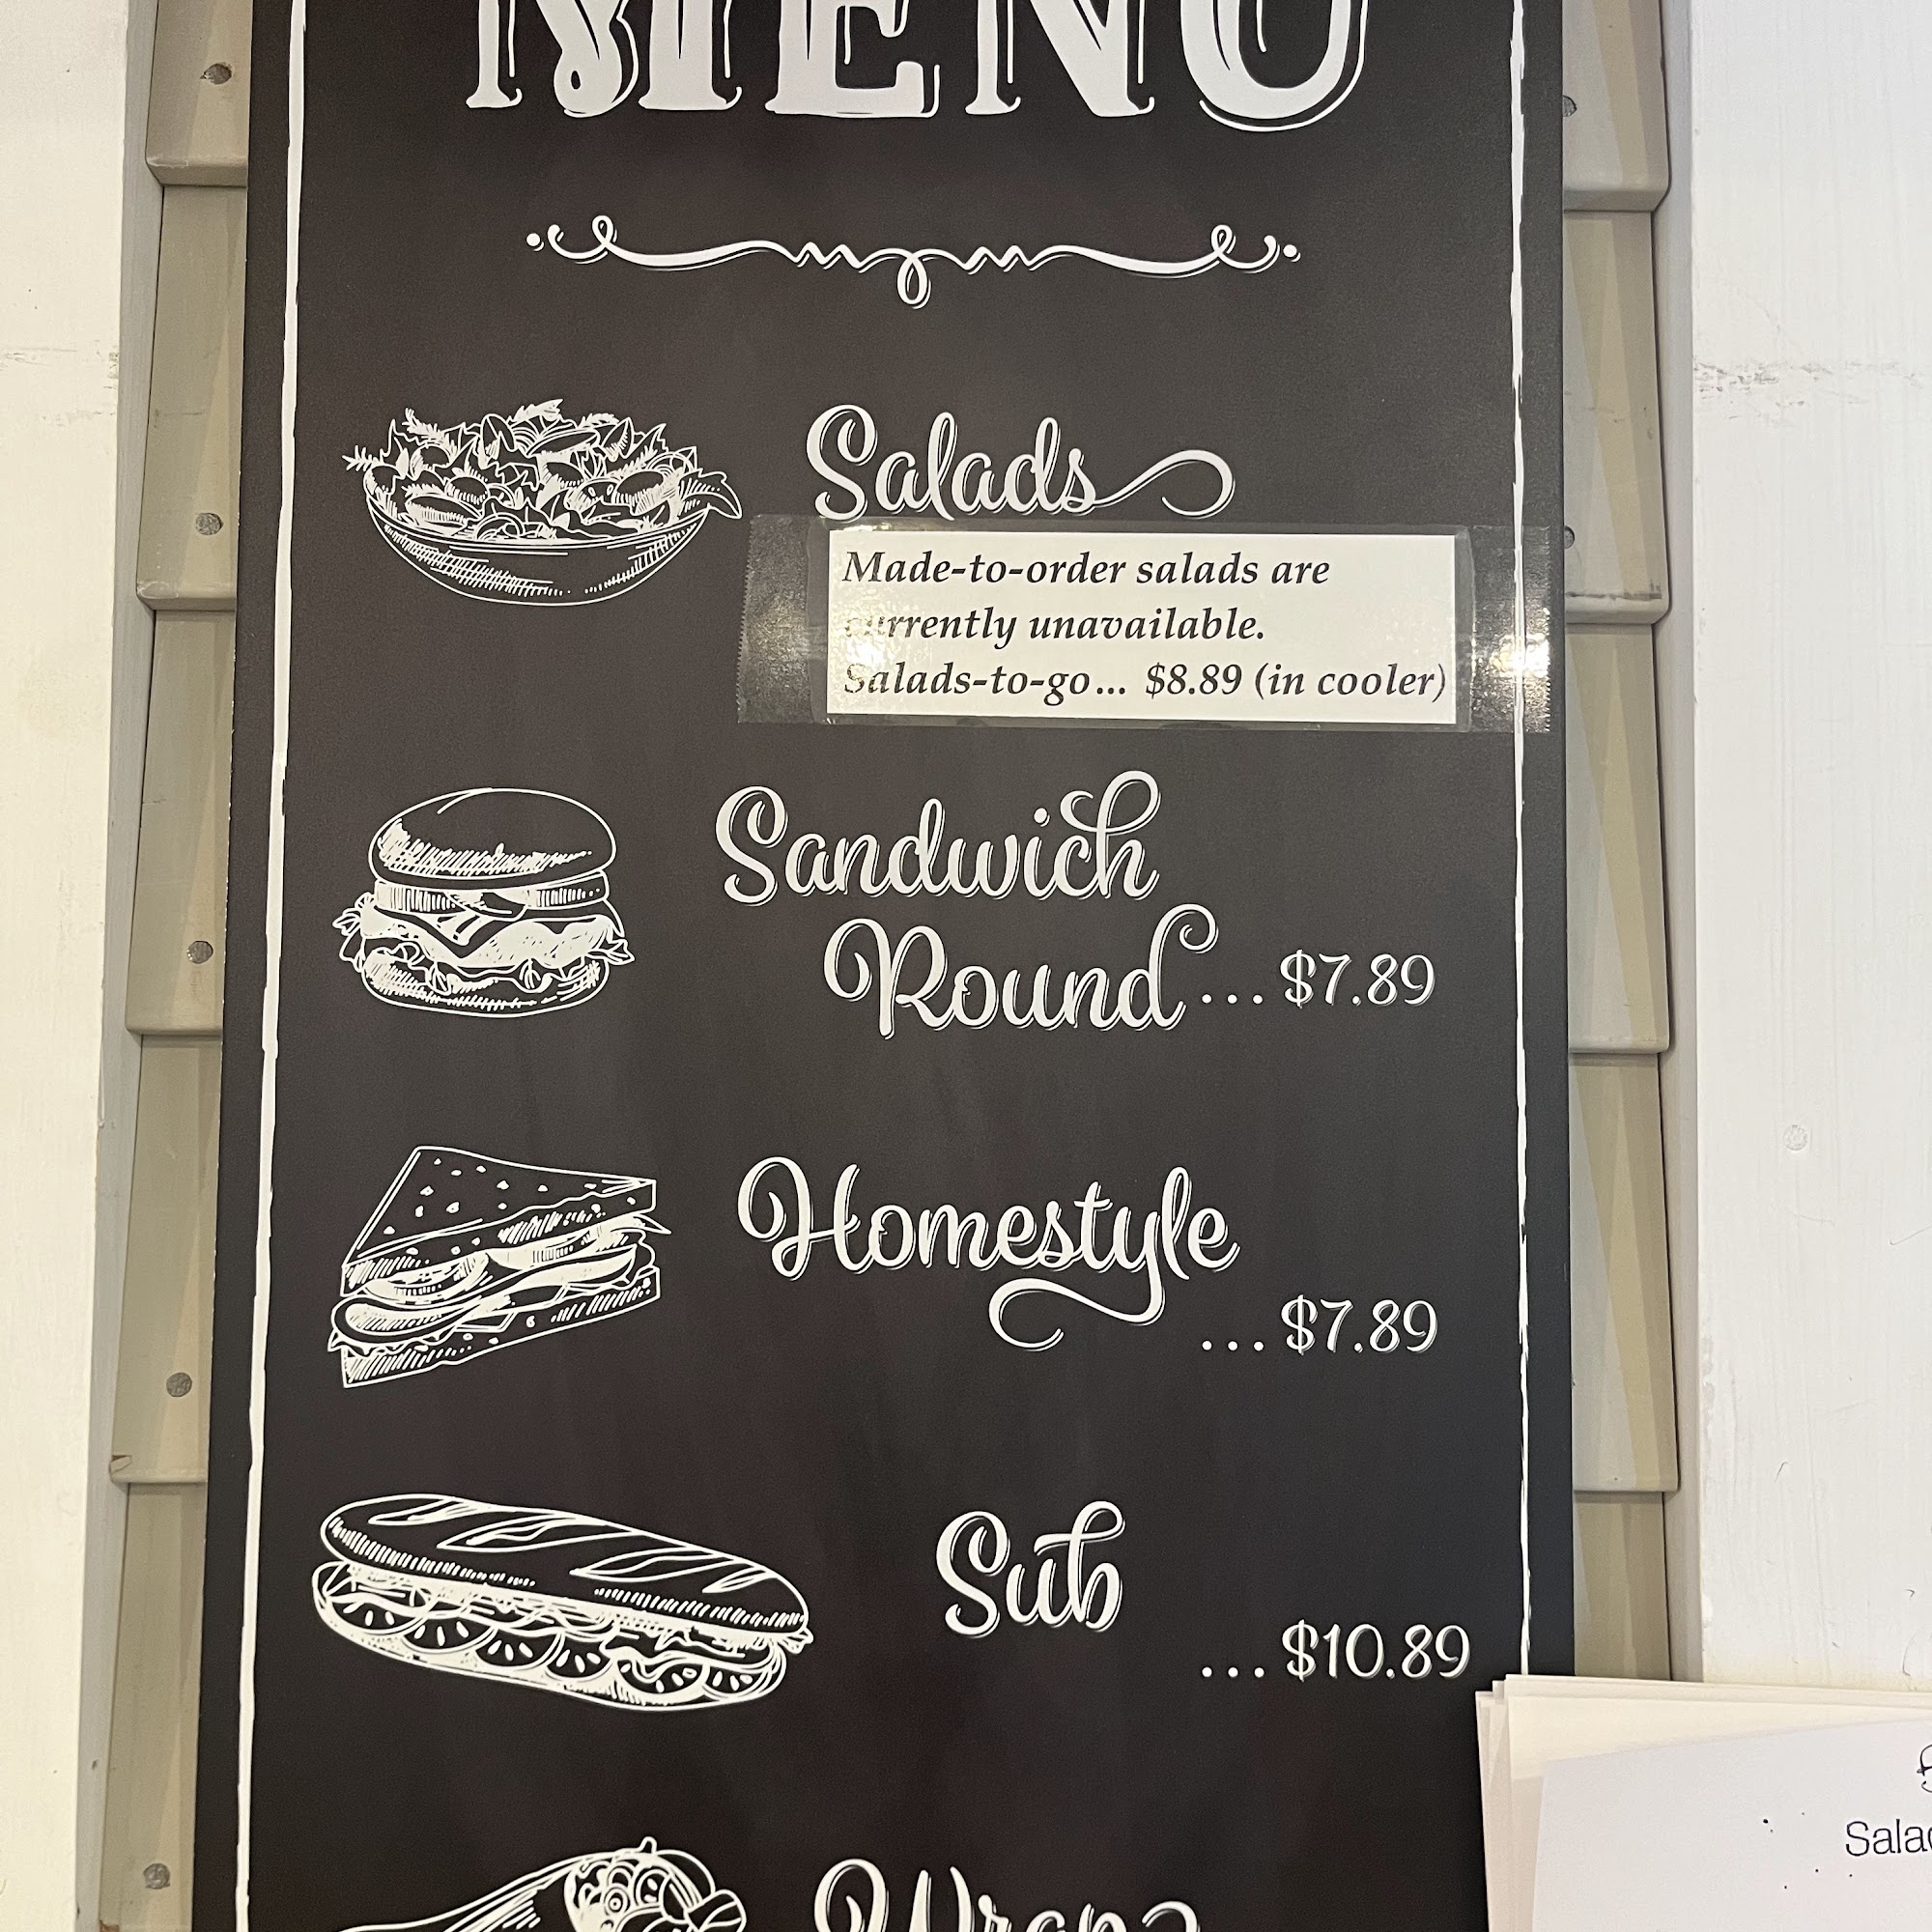 MENU
Salads
Made-to-order salads are
currently unavailable.
Salads-to-go... $8.89 (in cooler)
Sandwich
Round... $7.89
Homestyle
... $7.89
Sub
... $10.89